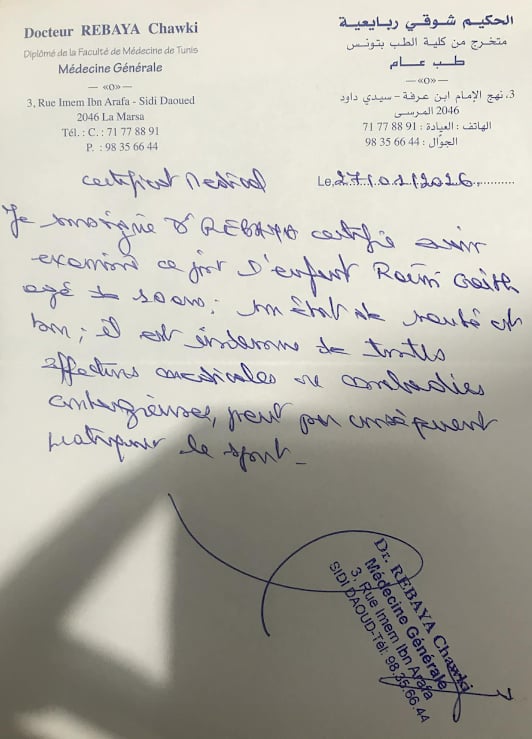 Docteur REBAYA Chawki
Diplômé de la Faculté de Médecine de Tunis
Médecine Générale
— «o» —
3, Rue Imem Ibn Arafa - Sidi Daoued
2046 La Marsa
Tél. : C. : 71 77 88 91
P. : 98 35 66 44
الحكيم شوقي ربايعية
متخرج من كلية الطب بتونس
طب عام
— «o» —
3، نهج الإمام ابن عرفة – سيدي داود
2046 المرسى
الهاتف : العيادة : 91 88 77 71
الجوّال : 44 66 35 98
Le 27/01/2026
Certificat Médical
Je soussigné Dr REBAYA certifie avoir
examiné ce jour l'enfant
agé de 10 ans ; son état de santé est
bon ; il est indemne de toutes
affections médicales ou maladies
contagieuses, peut par conséquent
pratiquer le sport.
Dr. REBAYA Chawki
Médecine Générale
3, Rue Imem Ibn Arafa
SIDI DAOUD-Tél: 98.35.66.44